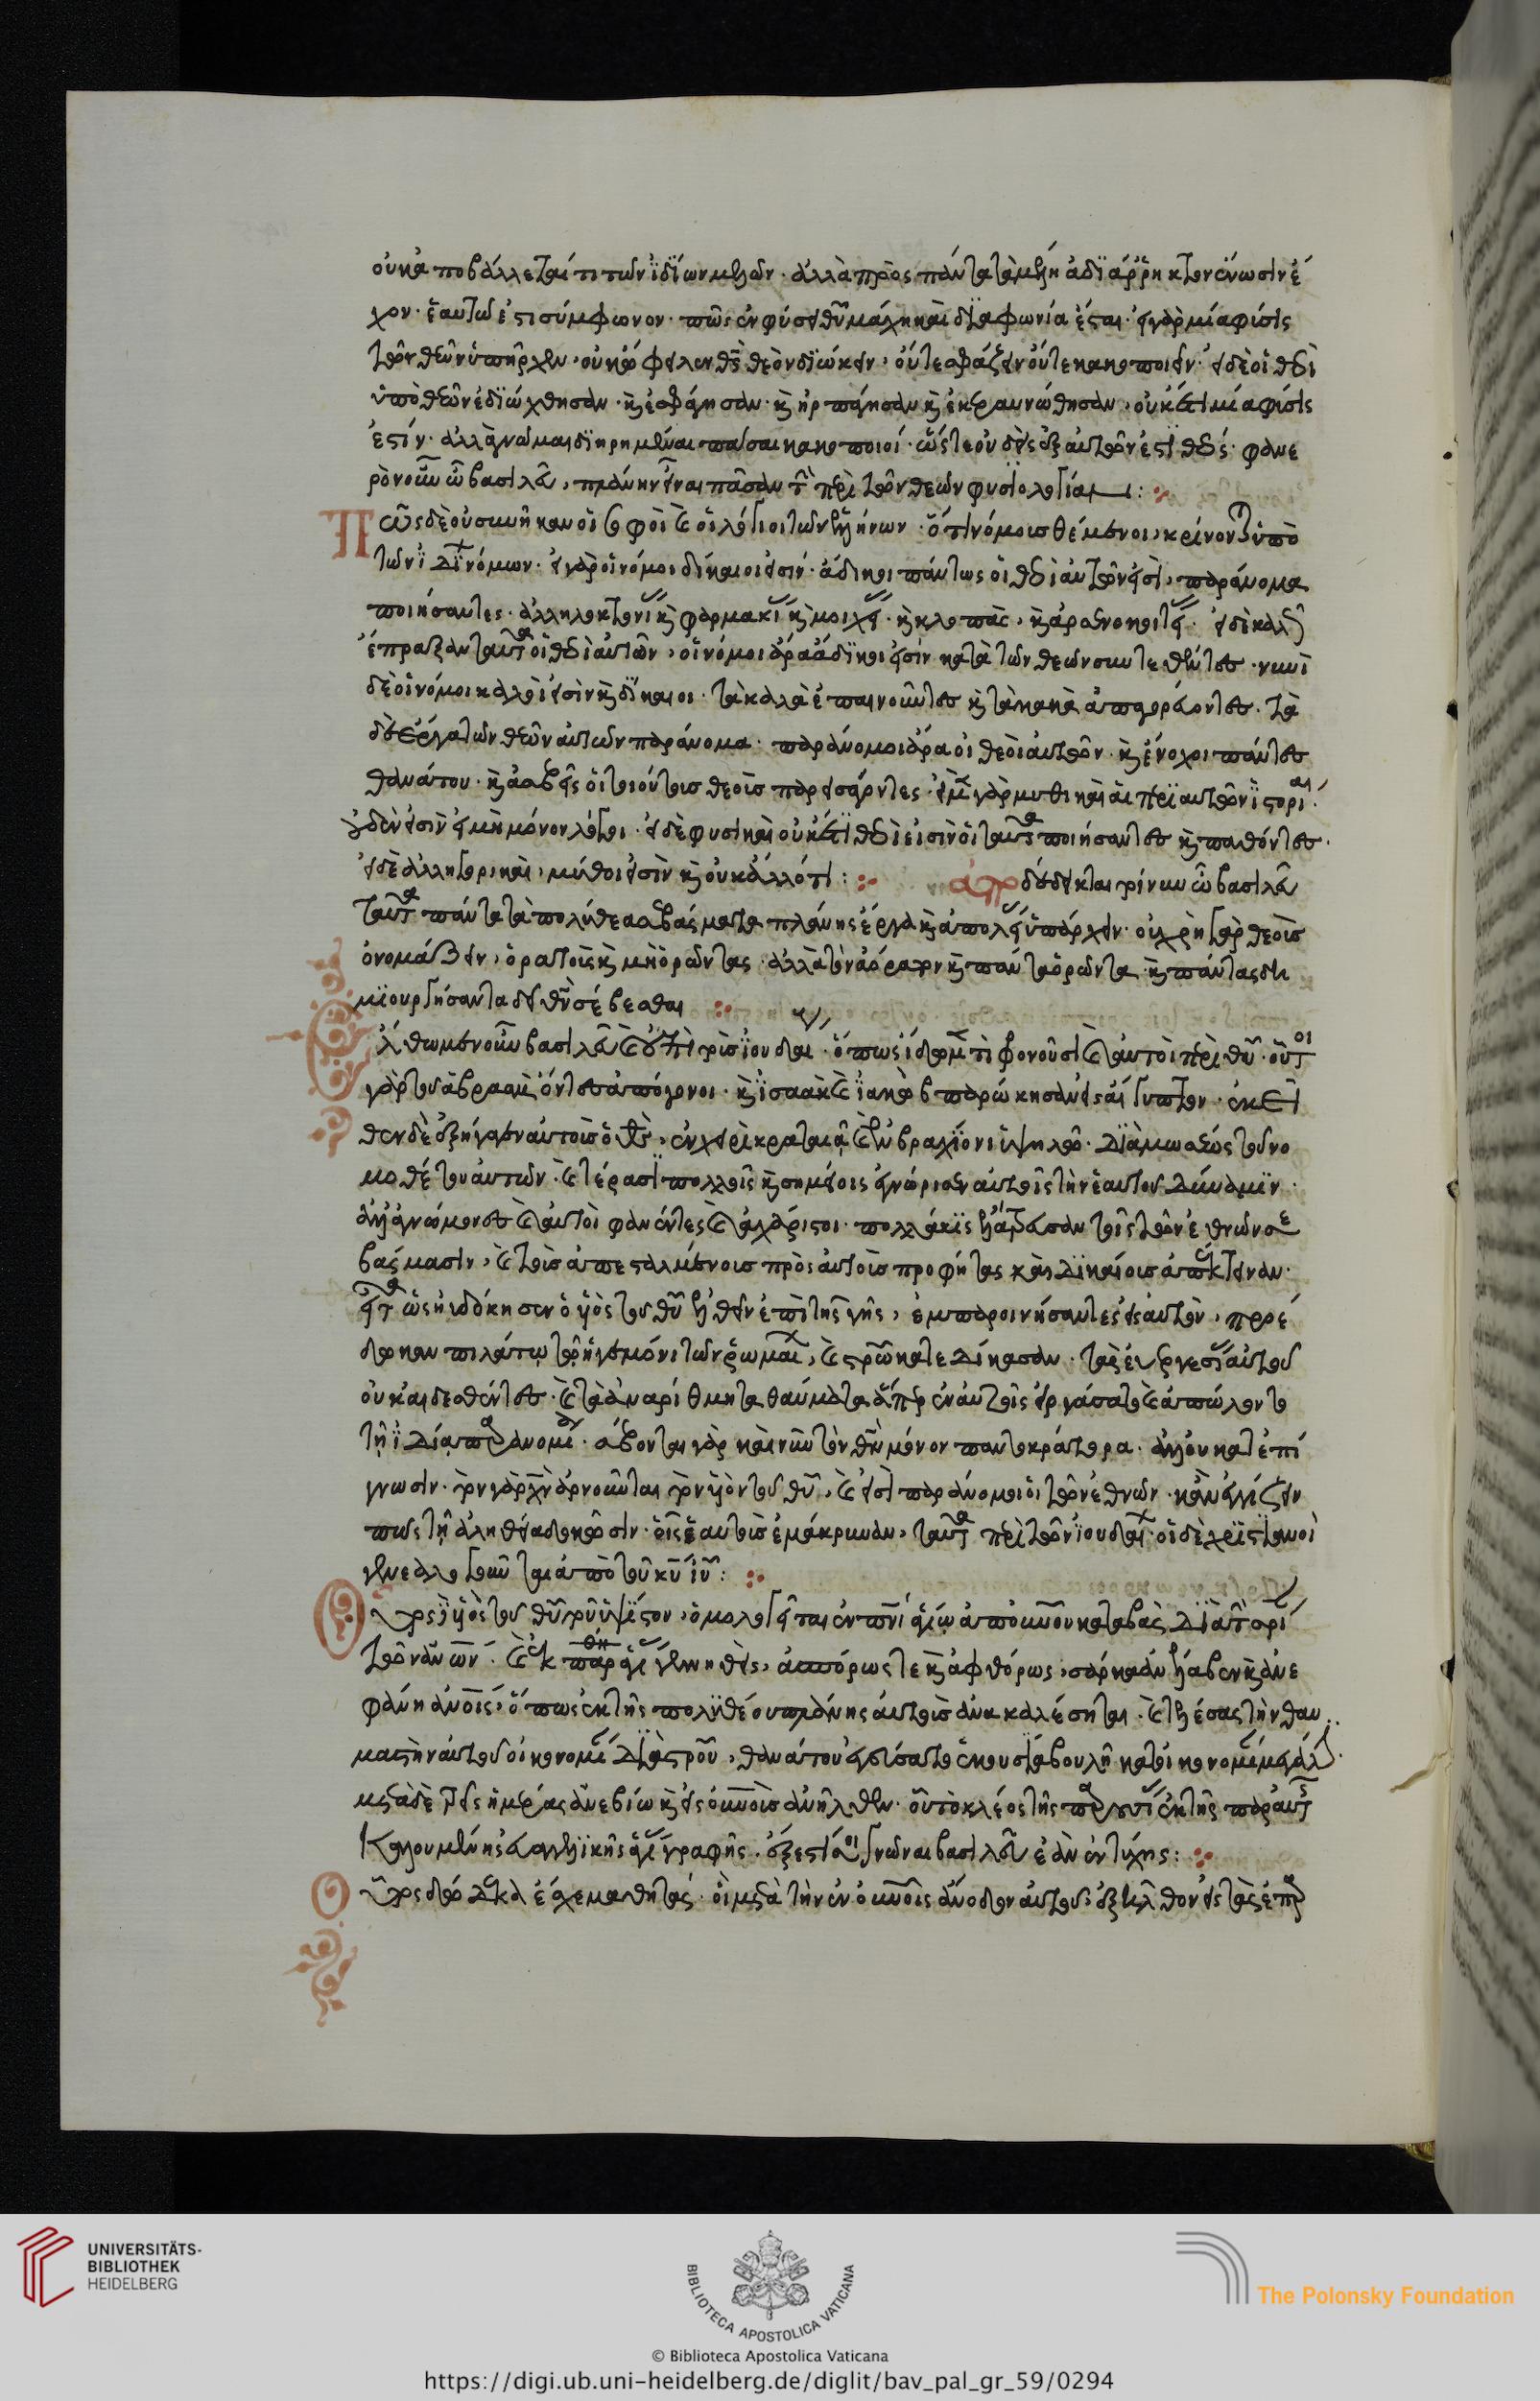 οὐκ ἀποβάλλεταί τι τῶν ἰδίων μελῶν· ἀλλὰ πρὸς πάντα τὰ μέλη ἀδϊάρρηκτον ἕνωσιν ἔ
χον· ἑαυτῶ ἐστι σύμφωνον· πῶς ἐν φύσει θῦ μάχη καὶ διαφωνία ἔσται· εἰ γὰρ μία φύσις
τῶν θεῶν ὑπῆρχεν, οὐκ ὤφειλεν θς θεὸν διώκειν, οὔτε σφάζειν οὔτε κακοποιεῖν· εἰ δὲ οἱ θεοὶ
ὑπὸ θεῶν ἐδιώχθησαν· κ ἐσφάγησαν· κ ἡρπάγησαν κ ἐκεραυνώθησαν, οὐκέτι μία φύσις
ἐστίν· ἀλλὰ γνῶμαι διηρημέναι πᾶσαι κακοποιοί· ὥστε οὐδεὶς ἐξ αὐτῶν ἐστϊ θεός· φανε
ρὸν οὖν ὦ βασιλεῦ, πλάνην εἶναι πᾶσαν τ περὶ τῶν θεῶν φυσιολογίαν:
Πῶς δὲ οὐ συνῆκαν οἱ σοφοὶ κ οἱ λόγιοι τῶν ἑλλήνων· ὅτι νόμους θέμενοι, κρίνονται ὑπὸ
τῶν ἰδίων νόμων· εἰ γὰρ οἱ νόμοι δίκαιοι εἰσίν· ἄδικοι πάντως οἱ θεοὶ αὐτῶν εἰσὶ, παράνομα
ποιήσαντες· ἀλληλοκτονί κ φαρμακί κ μοιχεί· κ κλοπὰς, κ ἀρσενοκοιτί· εἰ δὲ καλῶς
ἔπραξαν ταῦτα οἱ θεοὶ αὐτῶν, οἱ νόμοι ἄρα ἄδϊκοι εἰσὶν κατὰ τῶν θεῶν συντεθέντες· νυνὶ
δὲ οἱ νόμοι καλοὶ εἰσὶν κ δίκαιοι· τὰ καλὰ ἐπαινοῦντες κ τὰ κακὰ ἀπαγορεύοντες· τὰ
δὲ ἔργα τῶν θεῶν αὐτῶν παράνομα· παράνομοι ἄρα οἱ θεοὶ αὐτῶν· κ ἔνοχοι πάντες
θανάτου· κ ἀσεβεῖς οἱ τοιούτους θεοὺς παρεισάγοντες· εἰ μ γὰρ μυθικαὶ αἱ περὶ αὐτῶν ἱστορίαι·
οὐδέν εἰσιν εἰ μὴ μόνον λόγοι· εἰ δὲ φυσικαὶ οὐκέτι θεοὶ εἰσὶν οἱ ταῦτα ποιήσαντες κ παθόντες·
εἰ δὲ ἀλληγορικαὶ, μύθοι εἰσὶν κ οὐκ ἄλλό τι: ἀποδέδεικται τοίνυν ὦ βασιλεῦ
ταῦτα πάντα τὰ πολύθεα σεβάσματα πλάνης ἔργα κ ἀπωλεί ὑπάρχειν· οὐ χρὴ γὰρ θεοὺς
ὀνομάζειν, ὁρατοὺς κ μὴ ὁρῶντας· ἀλλὰ τὸν ἀόρατον κ πάντα ὁρῶντα· κ πάντας δη
μϊουργήσαντα δεῖ θν σέβεσθαι
Ἔλθωμεν οὖν βασιλεῦ κ ἐπὶ τοὺς ἰουδαί· ὅπως ἴδωμεν τὶ φρονοῦσι κ αὐτοὶ περὶ θῦ· οὗτοι
γὰρ τοῦ ἁβραὰμ ὄντες ἀπόγονοι· κ ἰσαὰκ κ ἰακὼβ παρώκησαν εἰς αἴγυπτον· ἐκεῖ
θεν δὲ ἐξήγαγεν αὐτοὺς ὁ θς, ἐν χειρὶ κραταιᾶ κ ἐν βραχίονι ὑψηλῶ· διὰ μωσέως τοῦ νο
μοθέτου αὐτῶν· κ τέρασϊ πολλοῖς κ σημείοις ἐγνώρισεν αὐτοῖς τὴν ἑαυτοῦ δύναμϊν·
ἀγνώμονες κ αὐτοὶ φανέντες κ ἀχάριστοι· πολλάκϊς ἐλάτρευσαν τοῖς τῶν ἐθνῶν σε
βάσμασιν, κ τοὺς ἀπεσταλμένους πρὸς αὐτοὺς προφήτας καὶ δικαίους ἀπέκτειναν·
εἶτα ὡς ηὐδόκησεν ὁ υἱὸς τοῦ θῦ ἐλθεῖν ἐπὶ τῆς γῆς, ἐμπαροινήσαντες εἰς αὐτὸν, προέ
δωκαν πιλάτω τῶ ἡγεμόνι τῶν ῥωμαί, κ στρῶ κατεδίκασαν· τὰς εὐεργεσί αὐτοῦ
οὐκ αἰδεσθέντες· κ τὰ ἀναρίθμητα θαύματα ἅπερ ἐν αὐτοῖς εἰργάσατο κ ἀπώλοντο
τῆ ἰδία παρανομί· σέβονται γὰρ καὶ νῦν τὸν θν μόνον παντοκράτορα· ἀλλ' οὐ κατ ἐπί
γνωσιν· τὸν γὰρ χν ἀρνοῦνται τὸν υἱὸν τοῦ θῦ, κ εἰσὶ παρόμοιοι τῶν ἐθνῶν· κἂν ἐγγίζειν
πως τῆ ἀληθεία δοκῶσιν· ἧς ἑαυτοὺς ἐμάκρυναν, ταῦτα περὶ τῶν ἰουδαί· οἱ δὲ χρϊστιανοὶ
γενεαλογοῦνται ἀπὸ τοῦ κῦ ἰῦ:
Οὗτος ὁ υἱὸς τοῦ θῦ τοῦ ὑψίστου, ὁμολογεῖται ἐν πνι ἁγίω ἀπ οὐνοῦ καταβὰς διὰ τ σρί
τῶν ἀνων· κ ἐκ παρθέ ἁγί γεννηθεὶς, ἀσπόρως τε κ ἀφθόρως, σάρκα ἀνέλαβεν κ ἀνε
φάνη ἀνοις, ὅπως ἐκ τῆς πολυθέου πλάνης αὐτοὺς ἀνακαλέσηται· κ τελέσας τὴν θαυ
μαστὴν αὐτοῦ οἰκονομί διὰ στροῦ, θανάτου ἐγεύσατο ἑκουσία βουλῆ κατ οἰκονομί μεγάλ·
μετὰ δὲ τρεῖς ἡμέρας ἀνεβίω κ εἰς οὐνοὺς ἀνῆλθεν· οὗ τὸ κλέος τῆς παρουσί ἐκ τῆς παρ αὐτ
καλουμένης εὐαγγελϊκῆς ἁγί γραφῆς· ἔξεστί σοι γνῶναι βασιλεῦ ἐὰν ἐντύχης:
Οὗτος δώδεκα ἔσχε μαθητάς· οἳ μετὰ τὴν ἐν οὐνοῖς ἄνοδον αὐτοῦ, ἐξῆλθον εἰς τὰς ἐπαρ
UNIVERSITÄTS-
BIBLIOTHEK
HEIDELBERG
BIBLIOTECA APOSTOLICA VATICANA
The Polonsky Foundation
© Biblioteca Apostolica Vaticana
https://digi.ub.uni-heidelberg.de/diglit/bav_pal_gr_59/0294